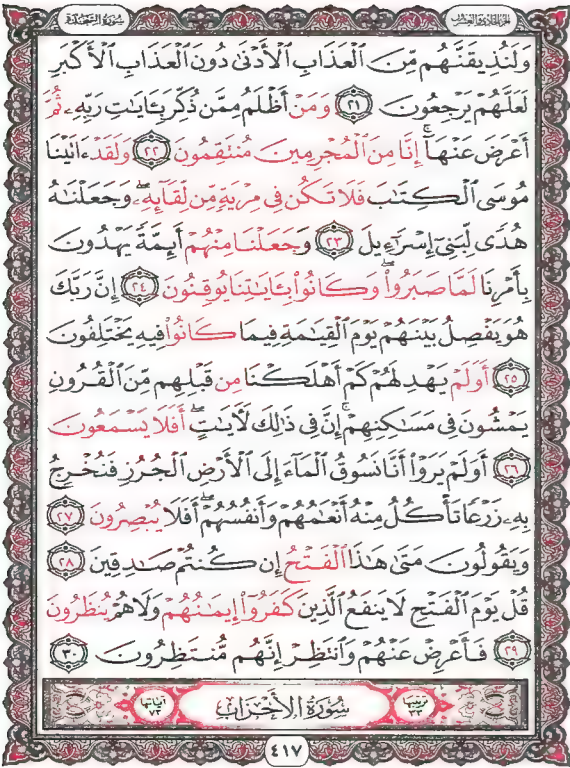 سُورَةُ السَّجْدَةِ
الجزء الحادي والعشرون
وَلَنُذِيقَنَّهُم مِّنَ ٱلْعَذَابِ ٱلْأَدْنَىٰ دُونَ ٱلْعَذَابِ ٱلْأَكْبَرِ
لَعَلَّهُمْ يَرْجِعُونَ ٢١ وَمَنْ أَظْلَمُ مِمَّن ذُكِّرَ بِـَٔايَـٰتِ رَبِّهِۦ ثُمَّ
أَعْرَضَ عَنْهَآ ۚ إِنَّا مِنَ ٱلْمُجْرِمِينَ مُنتَقِمُونَ ٢٢ وَلَقَدْ ءَاتَيْنَا
مُوسَى ٱلْكِتَـٰبَ فَلَا تَكُن فِى مِرْيَةٍ مِّن لِّقَآئِهِۦ ۖ وَجَعَلْنَـٰهُ
هُدًى لِّبَنِىٓ إِسْرَٰٓءِيلَ ٢٣ وَجَعَلْنَا مِنْهُمْ أَئِمَّةً يَهْدُونَ
بِأَمْرِنَا لَمَّا صَبَرُوا۟ ۖ وَكَانُوا۟ بِـَٔايَـٰتِنَا يُوقِنُونَ ٢٤ إِنَّ رَبَّكَ
هُوَ يَفْصِلُ بَيْنَهُمْ يَوْمَ ٱلْقِيَـٰمَةِ فِيمَا كَانُوا۟ فِيهِ يَخْتَلِفُونَ
٢٥ أَوَلَمْ يَهْدِ لَهُمْ كَمْ أَهْلَكْنَا مِن قَبْلِهِم مِّنَ ٱلْقُرُونِ
يَمْشُونَ فِى مَسَـٰكِنِهِمْ ۚ إِنَّ فِى ذَٰلِكَ لَـَٔايَـٰتٍ ۖ أَفَلَا يَسْمَعُونَ
٢٦ أَوَلَمْ يَرَوْا۟ أَنَّا نَسُوقُ ٱلْمَآءَ إِلَى ٱلْأَرْضِ ٱلْجُرُزِ فَنُخْرِجُ
بِهِۦ زَرْعًا تَأْكُلُ مِنْهُ أَنْعَـٰمُهُمْ وَأَنفُسُهُمْ ۖ أَفَلَا يُبْصِرُونَ ٢٧
وَيَقُولُونَ مَتَىٰ هَـٰذَا ٱلْفَتْحُ إِن كُنتُمْ صَـٰدِقِينَ ٢٨
قُلْ يَوْمَ ٱلْفَتْحِ لَا يَنفَعُ ٱلَّذِينَ كَفَرُوٓا۟ إِيمَـٰنُهُمْ وَلَا هُمْ يُنظَرُونَ
٢٩ فَأَعْرِضْ عَنْهُمْ وَٱنتَظِرْ إِنَّهُم مُّنتَظِرُونَ ٣٠
ترتيبها ٣٣ سُورَةُ الْأَحْزَابِ آياتها ٧٣
٤١٧